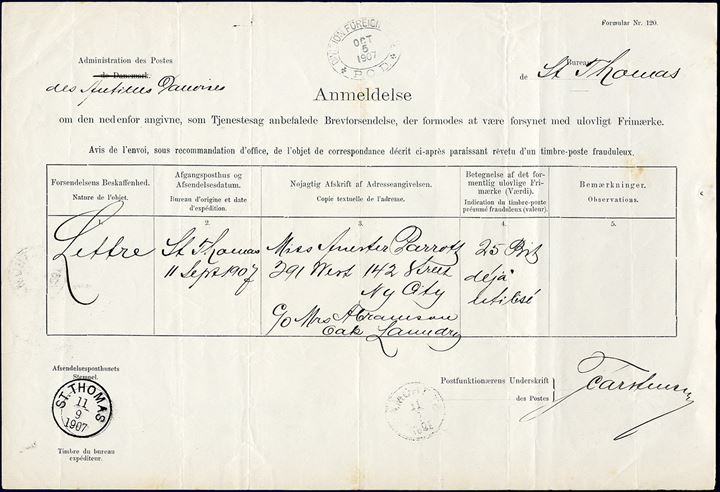 Formular Nr. 120.
FOREIGN
OCT
5
1907
P.O.D.
Administration des Postes
de Danemark.
des Antilles Danoises
Bureau
de St Thomas
Anmeldelse
om den nedenfor angivne, som Tjenestesag anbefalede Brevforsendelse, der formodes at være forsynet med ulovligt Frimærke.
Avis de l'envoi, sous recommandation d'office, de l'objet de correspondance décrit ci-après paraissant rêvetu d'un timbre-poste frauduleux.
Forsendelsens Beskaffenhed.
Nature de l'objet.
1.
Lettre
Afgangsposthus og
Afsendelsesdatum.
Bureau d'origine et date
d'expédition.
2.
St Thomas
11 Sept 1907
Nøjagtig Afskrift af Adresseangivelsen.
Copie textuelle de l'adresse.
3.
Miss Parrott
291 West 142 Street
Ny City
c/o Mrs Abramson
Oak Laundry
Betegnelse af det for-
mentlig ulovlige Fri-
mærke (Værdi).
Indication du timbre-poste
présumé frauduleux (valeur).
4.
25 Bit
déjà
utilisé
Bemærkninger.
Observations.
5.
Afsendelsesposthusets
Stempel.
ST. THOMAS
11
9
1907
Timbre du bureau
expéditeur.
Postfunktionærens Underskrift
des Postes